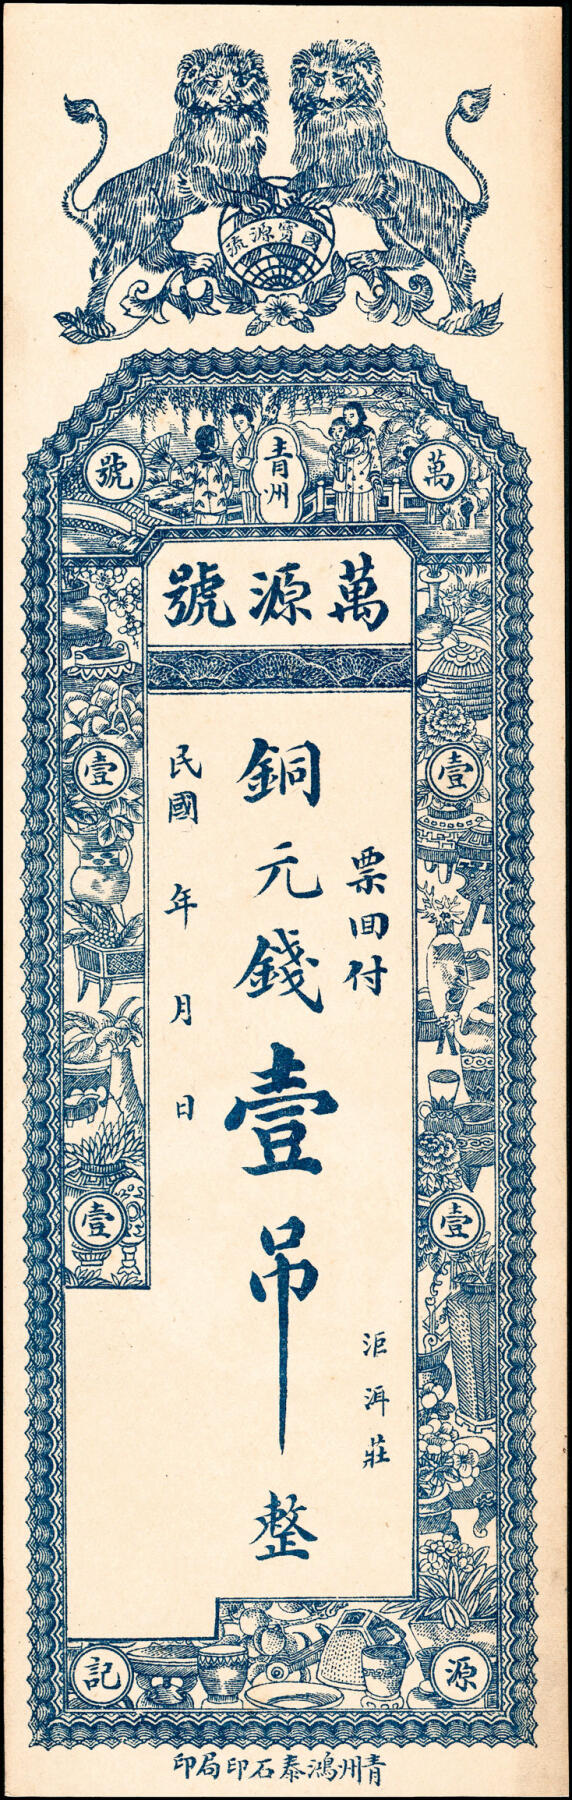 國寶源流
青州
萬 號
萬源號
票回付
銅元錢壹吊整
民國 年 月 日
洰洱莊
壹 壹
壹 壹
源 記
青州鴻泰石印局印